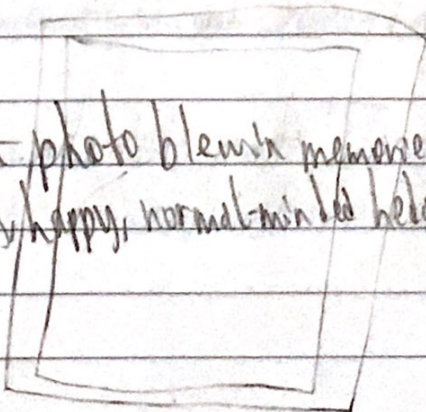 photo blewin memorie
happy, normal-minded